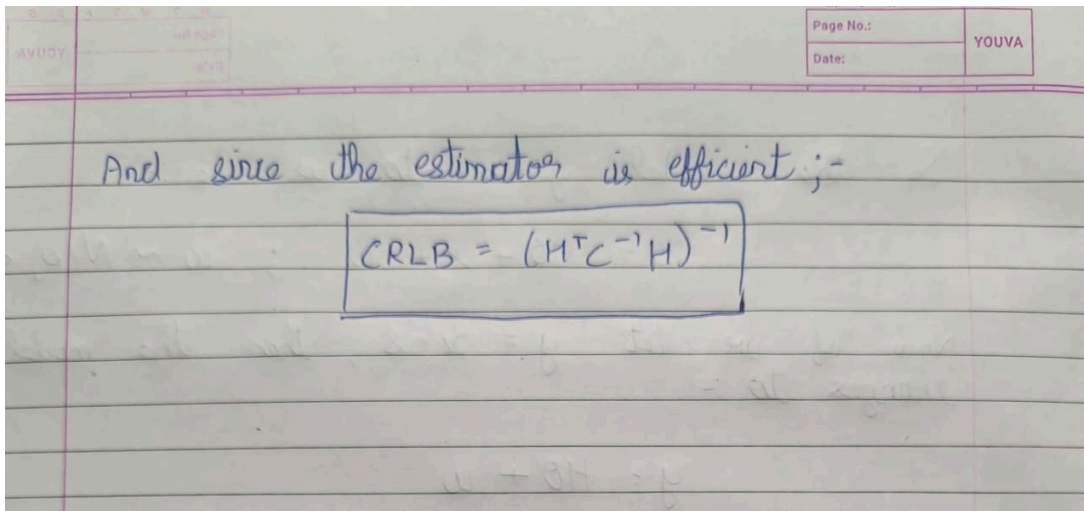 Page No.:
Date:
YOUVA
And since the estimator is efficient ;-
CRLB = (HᵀC⁻¹H)⁻¹